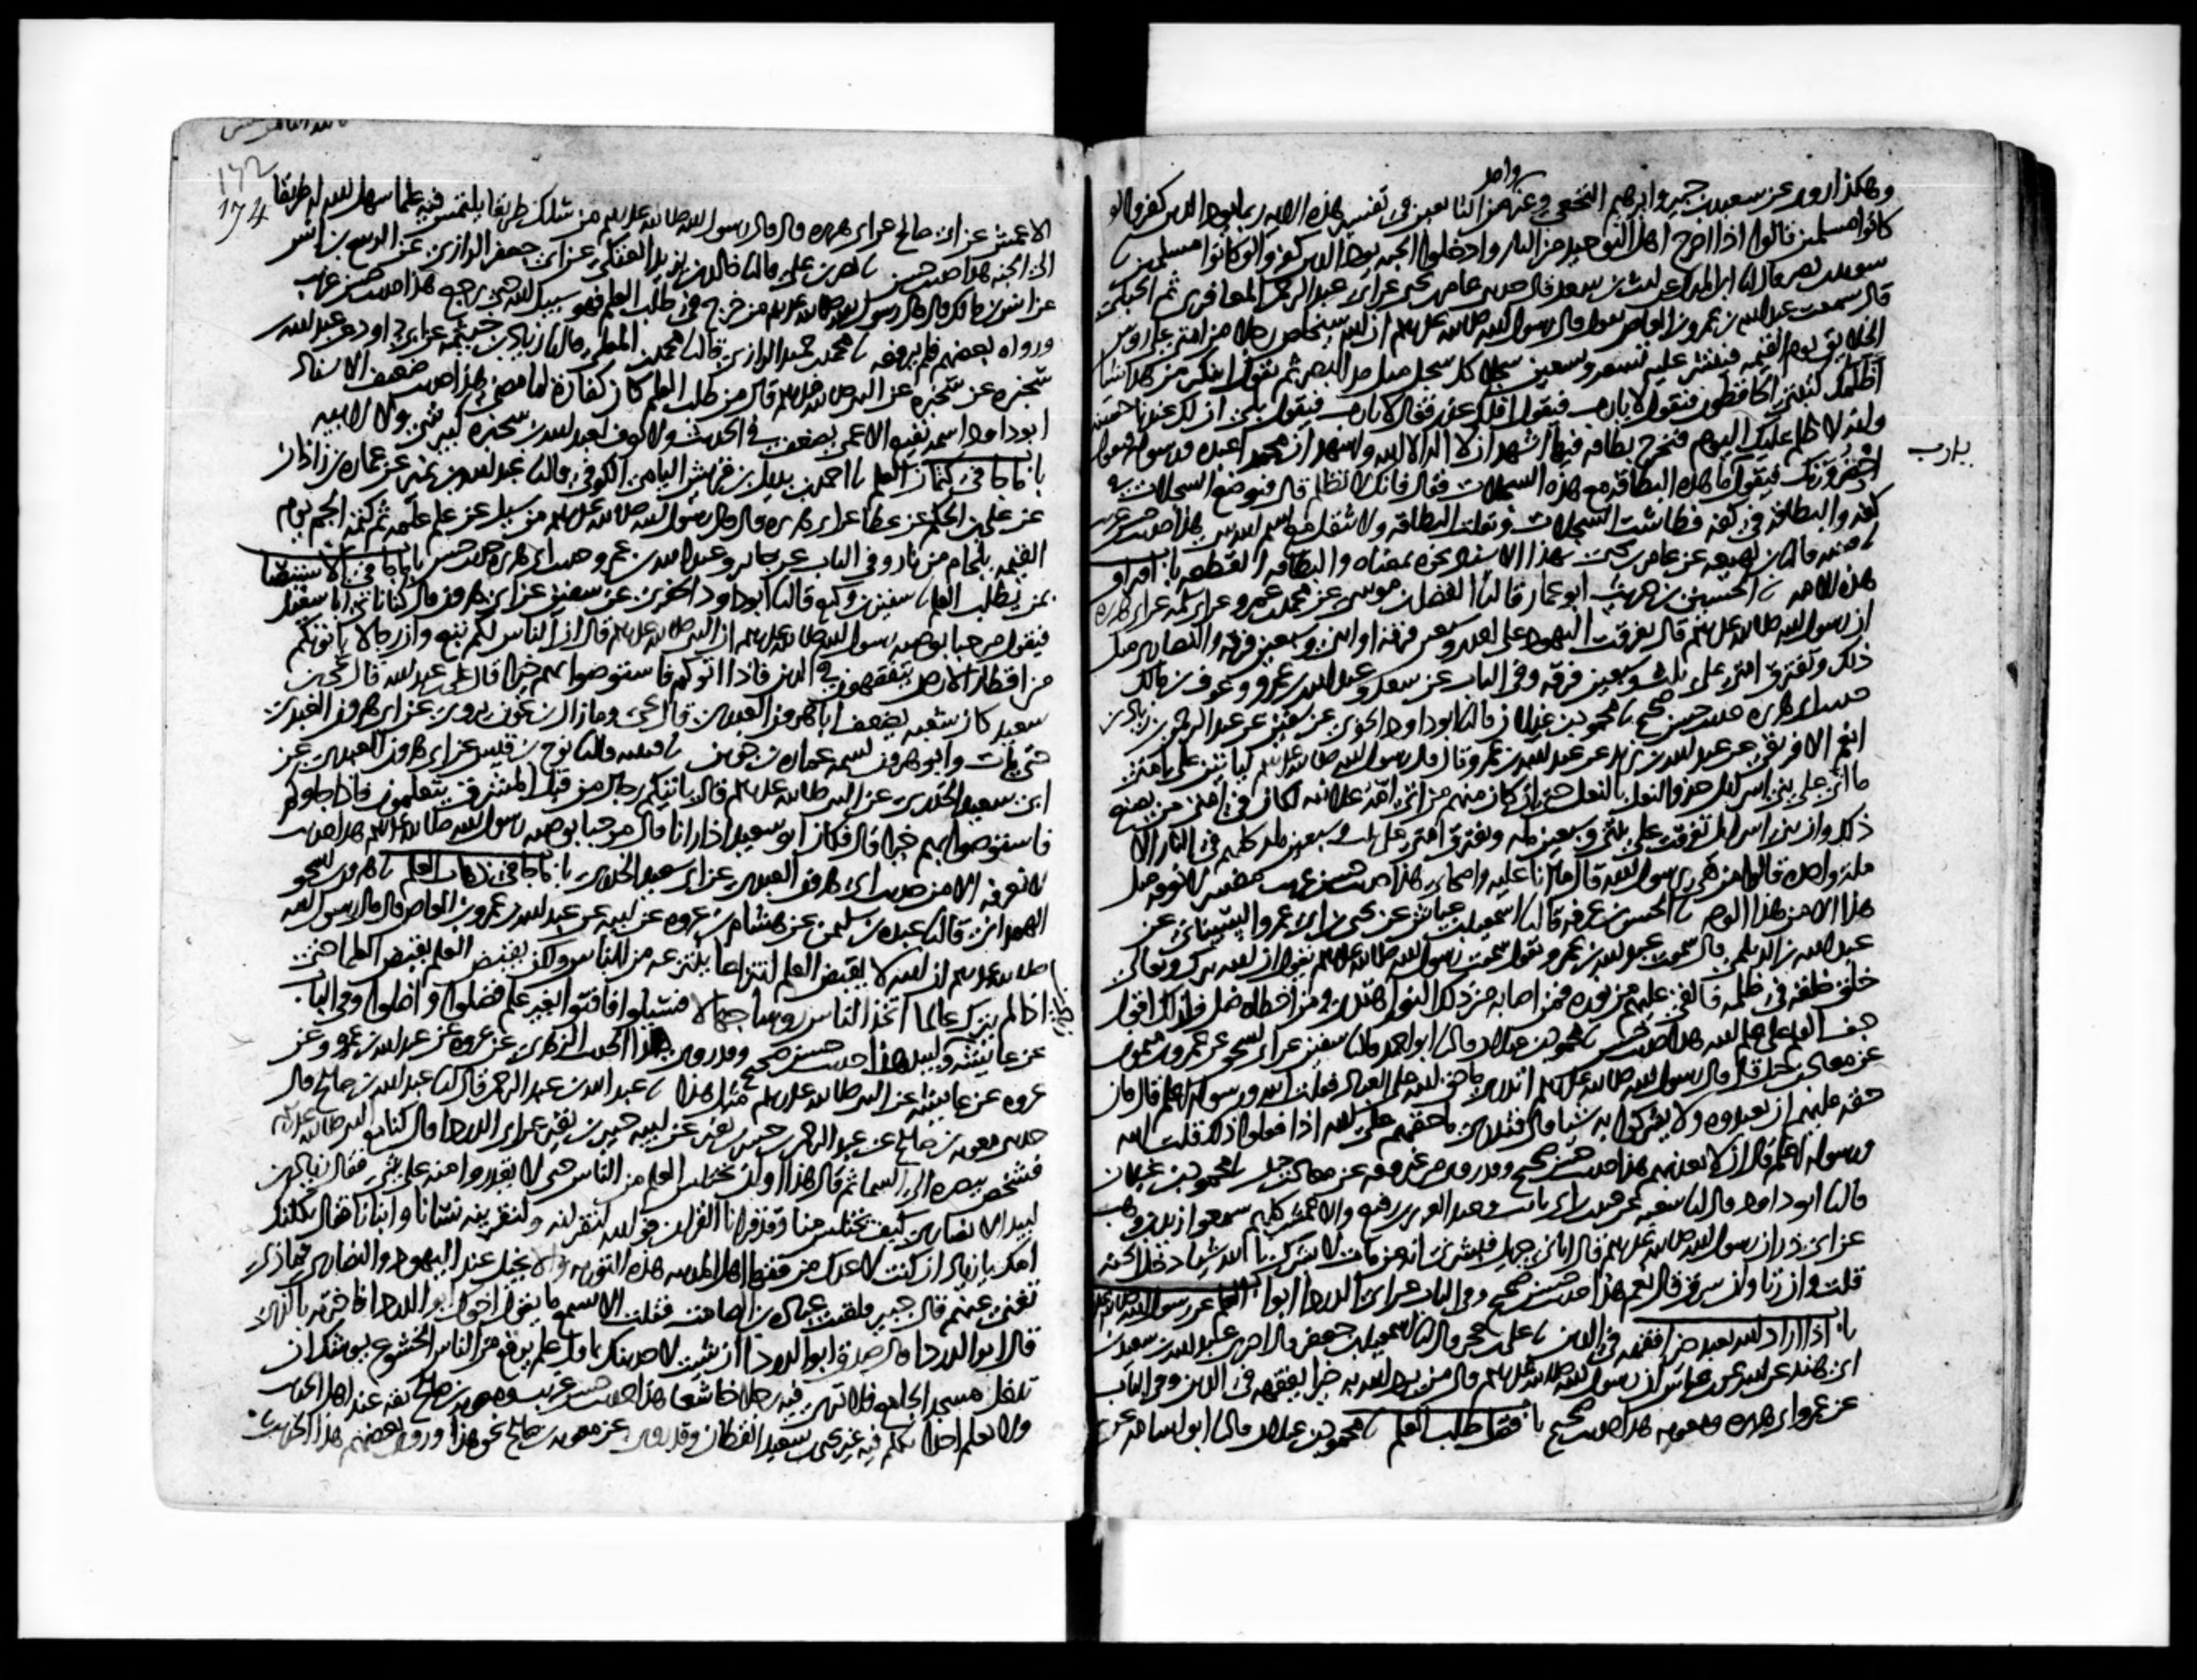 واحد
وهكذا روى عن سعيد بن جبير وابرهيم النخعي وغير من التابعين في تفسير هذه الايه ربما يود الذين كفروا لو
كانوا مسلمين قالوا اذا اخرج اهل التوحيد من النار وادخلوا الجنه يود الذين كفروا لو كانوا مسلمين
سويد بن نصر قال انا ابن المبارك عن ليث بن سعد قال حدثني عامر بن يحيى عن ابي عبد الرحمن المعافري ثم الحبلي
قال سمعت عبد الله بن عمرو بن العاص يقول قال رسول الله صلى الله عليه وسلم ان الله سيخلص رجلا من امتي على روس
الخلايق يوم القيمه فينشر عليه تسعه وتسعين سجلا كل سجل مثل مد البصر ثم يقول اتنكر من هذا شيا
اظلمك كتبتي الحافظون فيقول لا يارب فيقول افلك عذر فقال لا يارب فيقول بلى ان لك عندنا حسنه
وانه لا ظلم عليك اليوم فتخرج بطاقه فيها اشهد ان لا اله الا الله واشهد ان محمدا عبده ورسوله فيقول
احضر وزنك فيقول ما هذه البطاقه مع هذه السجلات فقال فانك لا تظلم قال فتوضع السجلات في
يارب
كفه والبطاقه في كفه فطاشت السجلات وثقلت البطاقه ولا يثقل مع اسم الله شي هذا حديث حسن غريب
قتيبه قال نا ابن لهيعه عن عامر بن يحيى بهذا الاسناد نحوه بمعناه والبطاقه القطعه باب افتراق
هذه الامه الحسين بن حريث ابو عمار قال نا الفضل بن موسى عن محمد بن عمرو عن ابي سلمه عن ابي هريره
ان رسول الله صلى الله عليه وسلم قال تفرقت اليهود على احدى وسبعين فرقه او اثنين وسبعين فرقه والنصارى مثل
ذلك وتفترق امتي على ثلث وسبعين فرقه وفي الباب عن سعد وعبد الله بن عمرو وعوف بن مالك
حديث ابي هريره حديث حسن صحيح محمود بن غيلان قال نا ابو داود الحفري عن سفين عن عبد الرحمن بن زياد بن
انعم الافريقي عن عبد الله بن يزيد عن عبد الله بن عمرو قال قال رسول الله صلى الله عليه وسلم لياتين على امتي
ما اتى على بني اسرايل حذو النعل بالنعل حتى ان كان منهم من اتى امه علانيه لكان في امتي من يصنع
ذلك وان بني اسرايل تفرقت على ثنتين وسبعين مله وتفترق امتي على ثلث وسبعين مله كلهم في النار الا
مله واحده قالوا من هي يرسول الله قال ما انا عليه واصحابي هذا حديث حسن غريب مفسر لا نعرفه مثل
هذا الا من هذا الوجه الحسن بن عرفه قال نا اسمعيل بن عياش عن يحيى بن ابي عمرو السيباني عن
عبد الله بن الديلمي قال سمعت عبد الله بن عمرو يقول سمعت رسول الله صلى الله عليه وسلم يقول ان الله تبرك وتعالى
خلق خلقه في ظلمه فالقى عليهم من نوره فمن اصابه من ذلك النور اهتدى ومن اخطاه ضل فلذلك اقول
جف القلم على علم الله هذا حديث حسن محمود بن غيلان قال نا ابو احمد قال نا سفين عن ابي اسحق عن عمرو بن ميمون
عن معاذ بن جبل قال قال رسول الله صلى الله عليه وسلم اتدري ما حق الله على العباد فقلت الله ورسوله اعلم قال فان
حقه عليهم ان يعبدوه ولا يشركوا به شيا قال فتدري ما حقهم على الله اذا فعلوا ذلك قلت الله
ورسوله اعلم قال ان لا يعذبهم هذا حديث حسن صحيح وقد روي من غير وجه عن معاذ بن جبل محمود بن غيلان
قال نا ابو داود قال نا شعبه عن حبيب بن ابي ثابت وعبد العزيز بن رفيع والاعمش كلهم سمعوا زيد بن وهب
عن ابي ذر ان رسول الله صلى الله عليه وسلم قال اتاني جبريل فبشرني انه من مات لا يشرك بالله شيا دخل الجنه
قلت وان زنا وان سرق قال نعم هذا حديث حسن صحيح وفي الباب عن ابي الدرداء ابواب العلم عن رسول الله صلى الله عليه
باب اذا اراد الله بعبد خيرا فقهه في الدين علي بن حجر قال نا اسمعيل بن جعفر قال اخبرني عبد الله بن سعيد بن
ابي هند عن ابيه عن ابن عباس ان رسول الله صلى الله عليه وسلم قال من يرد الله به خيرا يفقهه في الدين وفي الباب
عن عمر وابي هريره ومعويه هذا حديث صحيح باب فضل طلب العلم محمود بن غيلان قال نا ابو اسامه عن
174
الاعمش عن ابي صالح عن ابي هريره قال قال رسول الله صلى الله عليه وسلم من سلك طريقا يلتمس فيه علما سهل الله له طريقا
الى الجنه هذا حديث حسن نصر بن علي قال نا خالد بن يزيد العتكي عن ابي جعفر الرازي عن الربيع بن انس
عن انس بن مالك قال قال رسول الله صلى الله عليه وسلم من خرج في طلب العلم فهو سبيل الله حتى يرجع هذا حديث حسن غريب
ورواه بعضهم فلم يرفعه محمد بن حميد الرازي قال نا محمد بن المعلى قال نا زياد بن خيثمه عن ابي داود عن عبد الله بن
سخبره عن سخبره عن النبي صلى الله عليه وسلم قال من طلب العلم كان كفارة لما مضى هذا حديث ضعيف الاسناد
ابو داود اسمه نفيع الاعمى يضعف في الحديث ولا نعرف لعبد الله بن سخبره كبير شي ولا لابيه
باب ما جا في كتمان العلم احمد بن بديل بن قريش اليامي الكوفي قال نا عبد الله بن نمير عن عماره بن زاذان
عن علي بن الحكم عن عطا عن ابي هريره قال قال رسول الله صلى الله عليه وسلم من سيل عن علم علمه ثم كتمه الجم يوم
القيمه بلجام من نار وفي الباب عن جابر وعبد الله بن عمرو حديث ابي هريره حديث حسن باب ما جا في الاستيصا
بمن يطلب العلم سفين بن وكيع قال نا ابو داود الحفري عن سفين عن ابي هرون قال كنا ناتي ابا سعيد
فيقول مرحبا بوصيه رسول الله صلى الله عليه وسلم ان النبي صلى الله عليه وسلم قال ان الناس لكم تبع وان رجالا ياتونكم
من اقطار الارض يتفقهون في الدين فاذا اتوكم فاستوصوا بهم خيرا قال علي بن عبد الله قال يحيى بن
سعيد كان شعبه يضعف ابا هرون العبدي قال يحيى وما زال ابن عون يروي عن ابي هرون العبدي
حتى مات وابو هرون اسمه عماره بن جوين قتيبه قال نا نوح بن قيس عن ابي هرون العبدي عن
ابي سعيد الخدري عن النبي صلى الله عليه وسلم قال ياتيكم رجال من قبل المشرق يتعلمون فاذا جاوكم
فاستوصوا بهم خيرا قال فكان ابو سعيد اذا رانا قال مرحبا بوصيه رسول الله صلى الله عليه وسلم هذا حديث
لا نعرفه الا من حديث ابي هرون العبدي عن ابي سعيد الخدري باب ما جا في ذهاب العلم هرون بن اسحق
الهمداني قال نا عبده بن سليمن عن هشام بن عروه عن ابيه عن عبد الله بن عمرو بن العاص قال قال رسول الله
صلى الله عليه وسلم ان الله لا يقبض العلم انتزاعا ينتزعه من الناس ولكن يقبض العلم بقبض العلما حتى
اذا لم يترك عالما اتخذ الناس روسا جهالا فسيلوا فافتوا بغير علم فضلوا واضلوا وفي الباب
عن عايشه وزياد بن لبيد هذا حديث حسن صحيح وقد روى هذا الحديث الزهري عن عروه عن عبد الله بن عمرو وعن
عروه عن عايشه عن النبي صلى الله عليه وسلم مثل هذا عبد الله بن عبد الرحمن قال نا عبد الله بن صالح قال
حدثني معويه بن صالح عن عبد الرحمن بن جبير بن نفير عن ابيه جبير بن نفير عن ابي الدرداء قال كنا مع النبي صلى الله عليه
فشخص ببصره الى السما ثم قال هذا اوان يختلس العلم من الناس حتى لا يقدروا منه على شي فقال زياد بن
لبيد الانصاري كيف يختلس منا وقد قرانا القران فوالله لنقرانه ولنقرينه نسانا وابنانا فقال ثكلتك
امك يا زياد ان كنت لاعدك من فقها اهل المدينه هذه التوريه والانجيل عند اليهود والنصارى فماذا
تغني عنهم قال جبير فلقيت عباده بن الصامت فقلت الا تسمع ما يقول اخوك ابو الدرداء فاخبرته بالذي
قال ابو الدرداء قال صدق ابو الدرداء ان شيت لاحدثنك باول علم يرفع من الناس الخشوع يوشك ان
تدخل مسجد الجامع فلا ترى فيه رجلا خاشعا هذا حديث حسن غريب ومعويه بن صالح ثقه عند اهل الحديث
ولا نعلم احدا تكلم فيه غير يحيى بن سعيد القطان وقد روي عن معويه بن صالح نحو هذا وروى بعضهم هذا الحديث